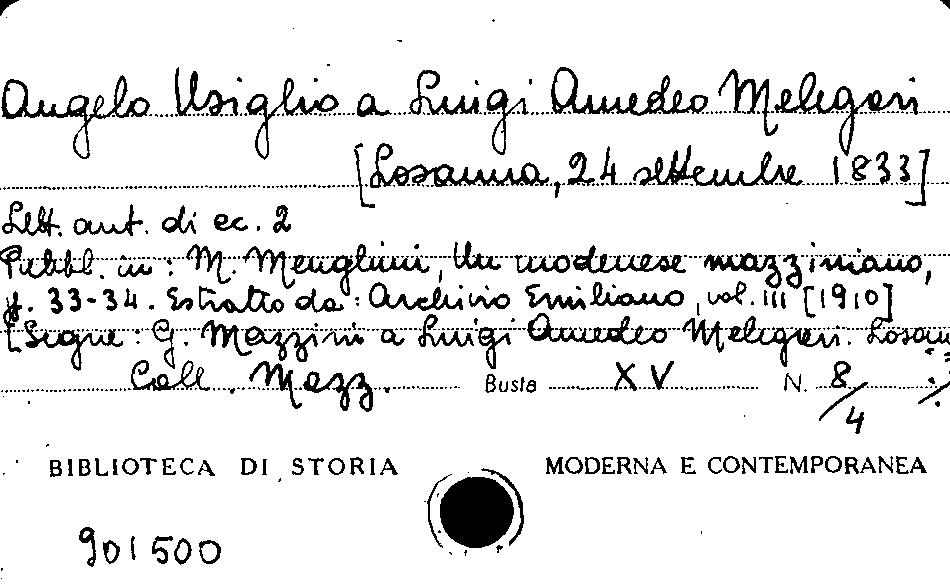 Angelo Usiglio a Luigi Amedeo Melegari
[Losanna, 24 settembre 1833]
Lett. aut. di cc. 2
Pubbl. in: M. Menghini, Un modenese mazziniano,
p. 33-34. Estratto da: Archivio Emiliano, vol. III [1910]
[Segue: G. Mazzini a Luigi Amedeo Melegari. Losan
Coll. Mazz. Busta XV N. 8/4 ./.
BIBLIOTECA DI STORIA MODERNA E CONTEMPORANEA
901500